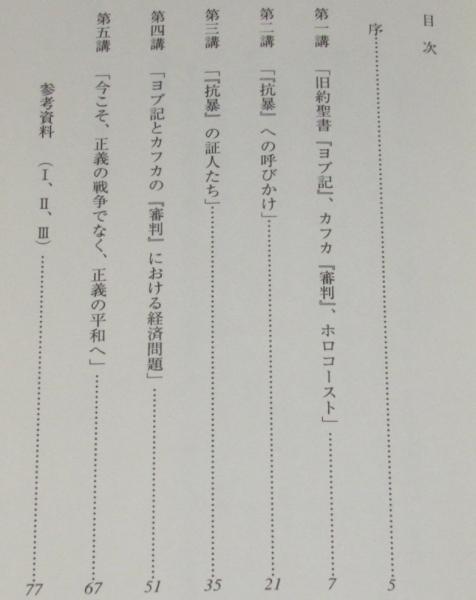 目次
序……………………………………5
第一講　「旧約聖書『ヨブ記』、カフカ『審判』、ホロコースト」……………7
第二講　「『抗暴』への呼びかけ」……………………………21
第三講　「『抗暴』の証人たち」……………………………35
第四講　「ヨブ記とカフカの『審判』における経済問題」………………51
第五講　「今こそ、正義の戦争でなく、正義の平和へ」………………67
参考資料　（Ⅰ、Ⅱ、Ⅲ）……………………………77